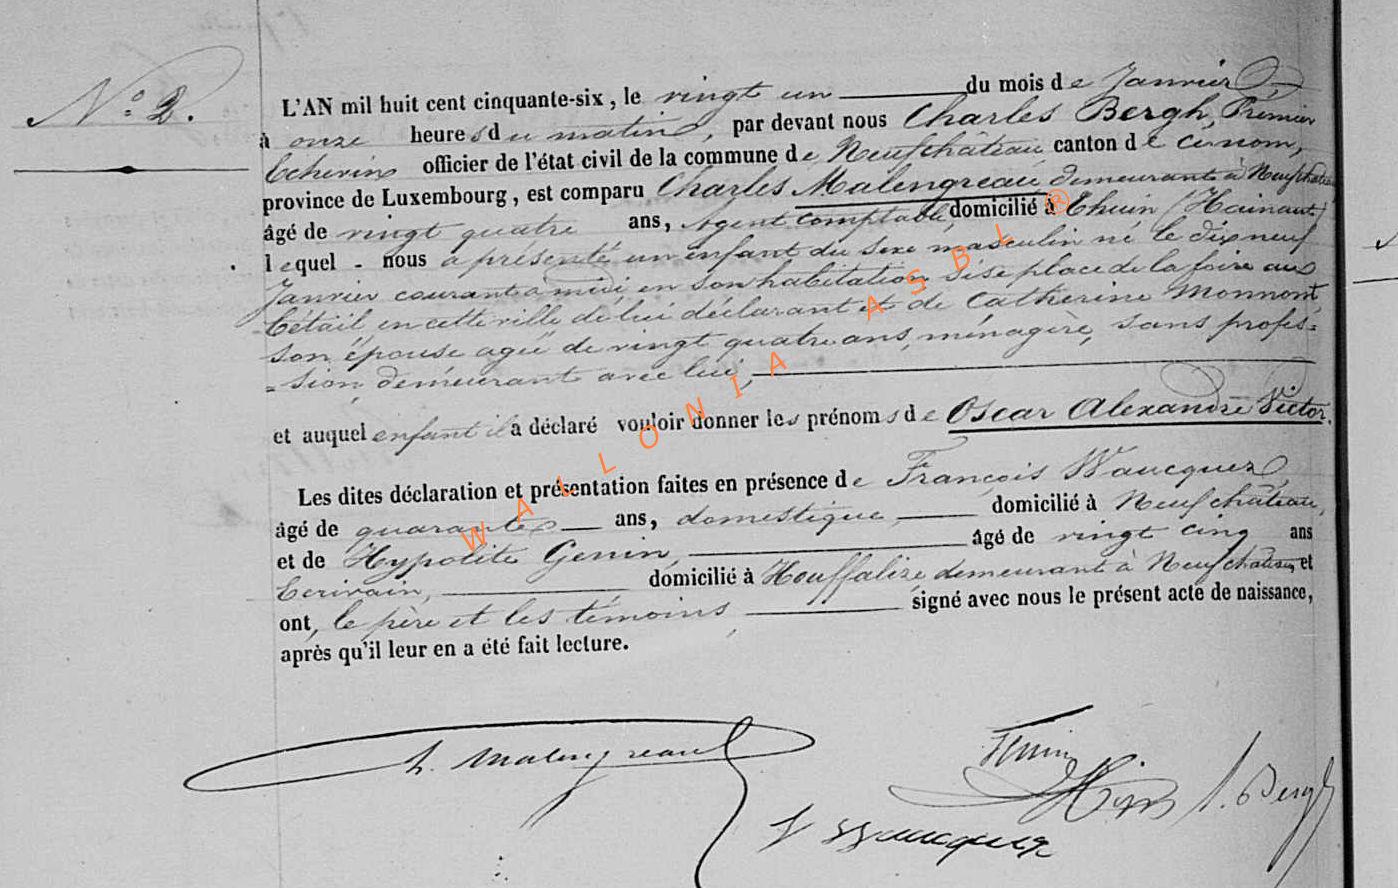 N° 2.
L'AN mil huit cent cinquante-six, le vingt un du mois de Janvier,
à onze heures du matin, par devant nous Charles Bergh, Premier
Echevin officier de l'état civil de la commune de Neufchâteau canton de ce nom,
province de Luxembourg, est comparu Charles Malengreau demeurant à Neufchateau
âgé de vingt quatre ans, Agent comptable, domicilié à Thuin (Hainaut)
lequel nous a présenté un enfant du sexe masculin né le dix neuf
Janvier courant à midi en son habitation sise place de la foire aux
bétail en cette ville de lui déclarant et de Catherine Monnont
son épouse agée de vingt quatre ans, ménagère, sans profes=
=sion demeurant avec lui,
et auquel enfant il a déclaré vouloir donner les prénoms de Oscar Alexandre Victor.
Les dites déclaration et présentation faites en présence de François Waucquez
âgé de quarante ans, domestique, domicilié à Neufchâteau,
et de Hypolite Genin, âgé de vingt cinq ans
Ecrivain, domicilié à Houffalize demeurant à Neufchâteau et
ont, le père et les témoins signé avec nous le présent acte de naissance,
après qu'il leur en a été fait lecture.
WALLONIA ASBL ®
Malengreau
Bergh
Waucquez